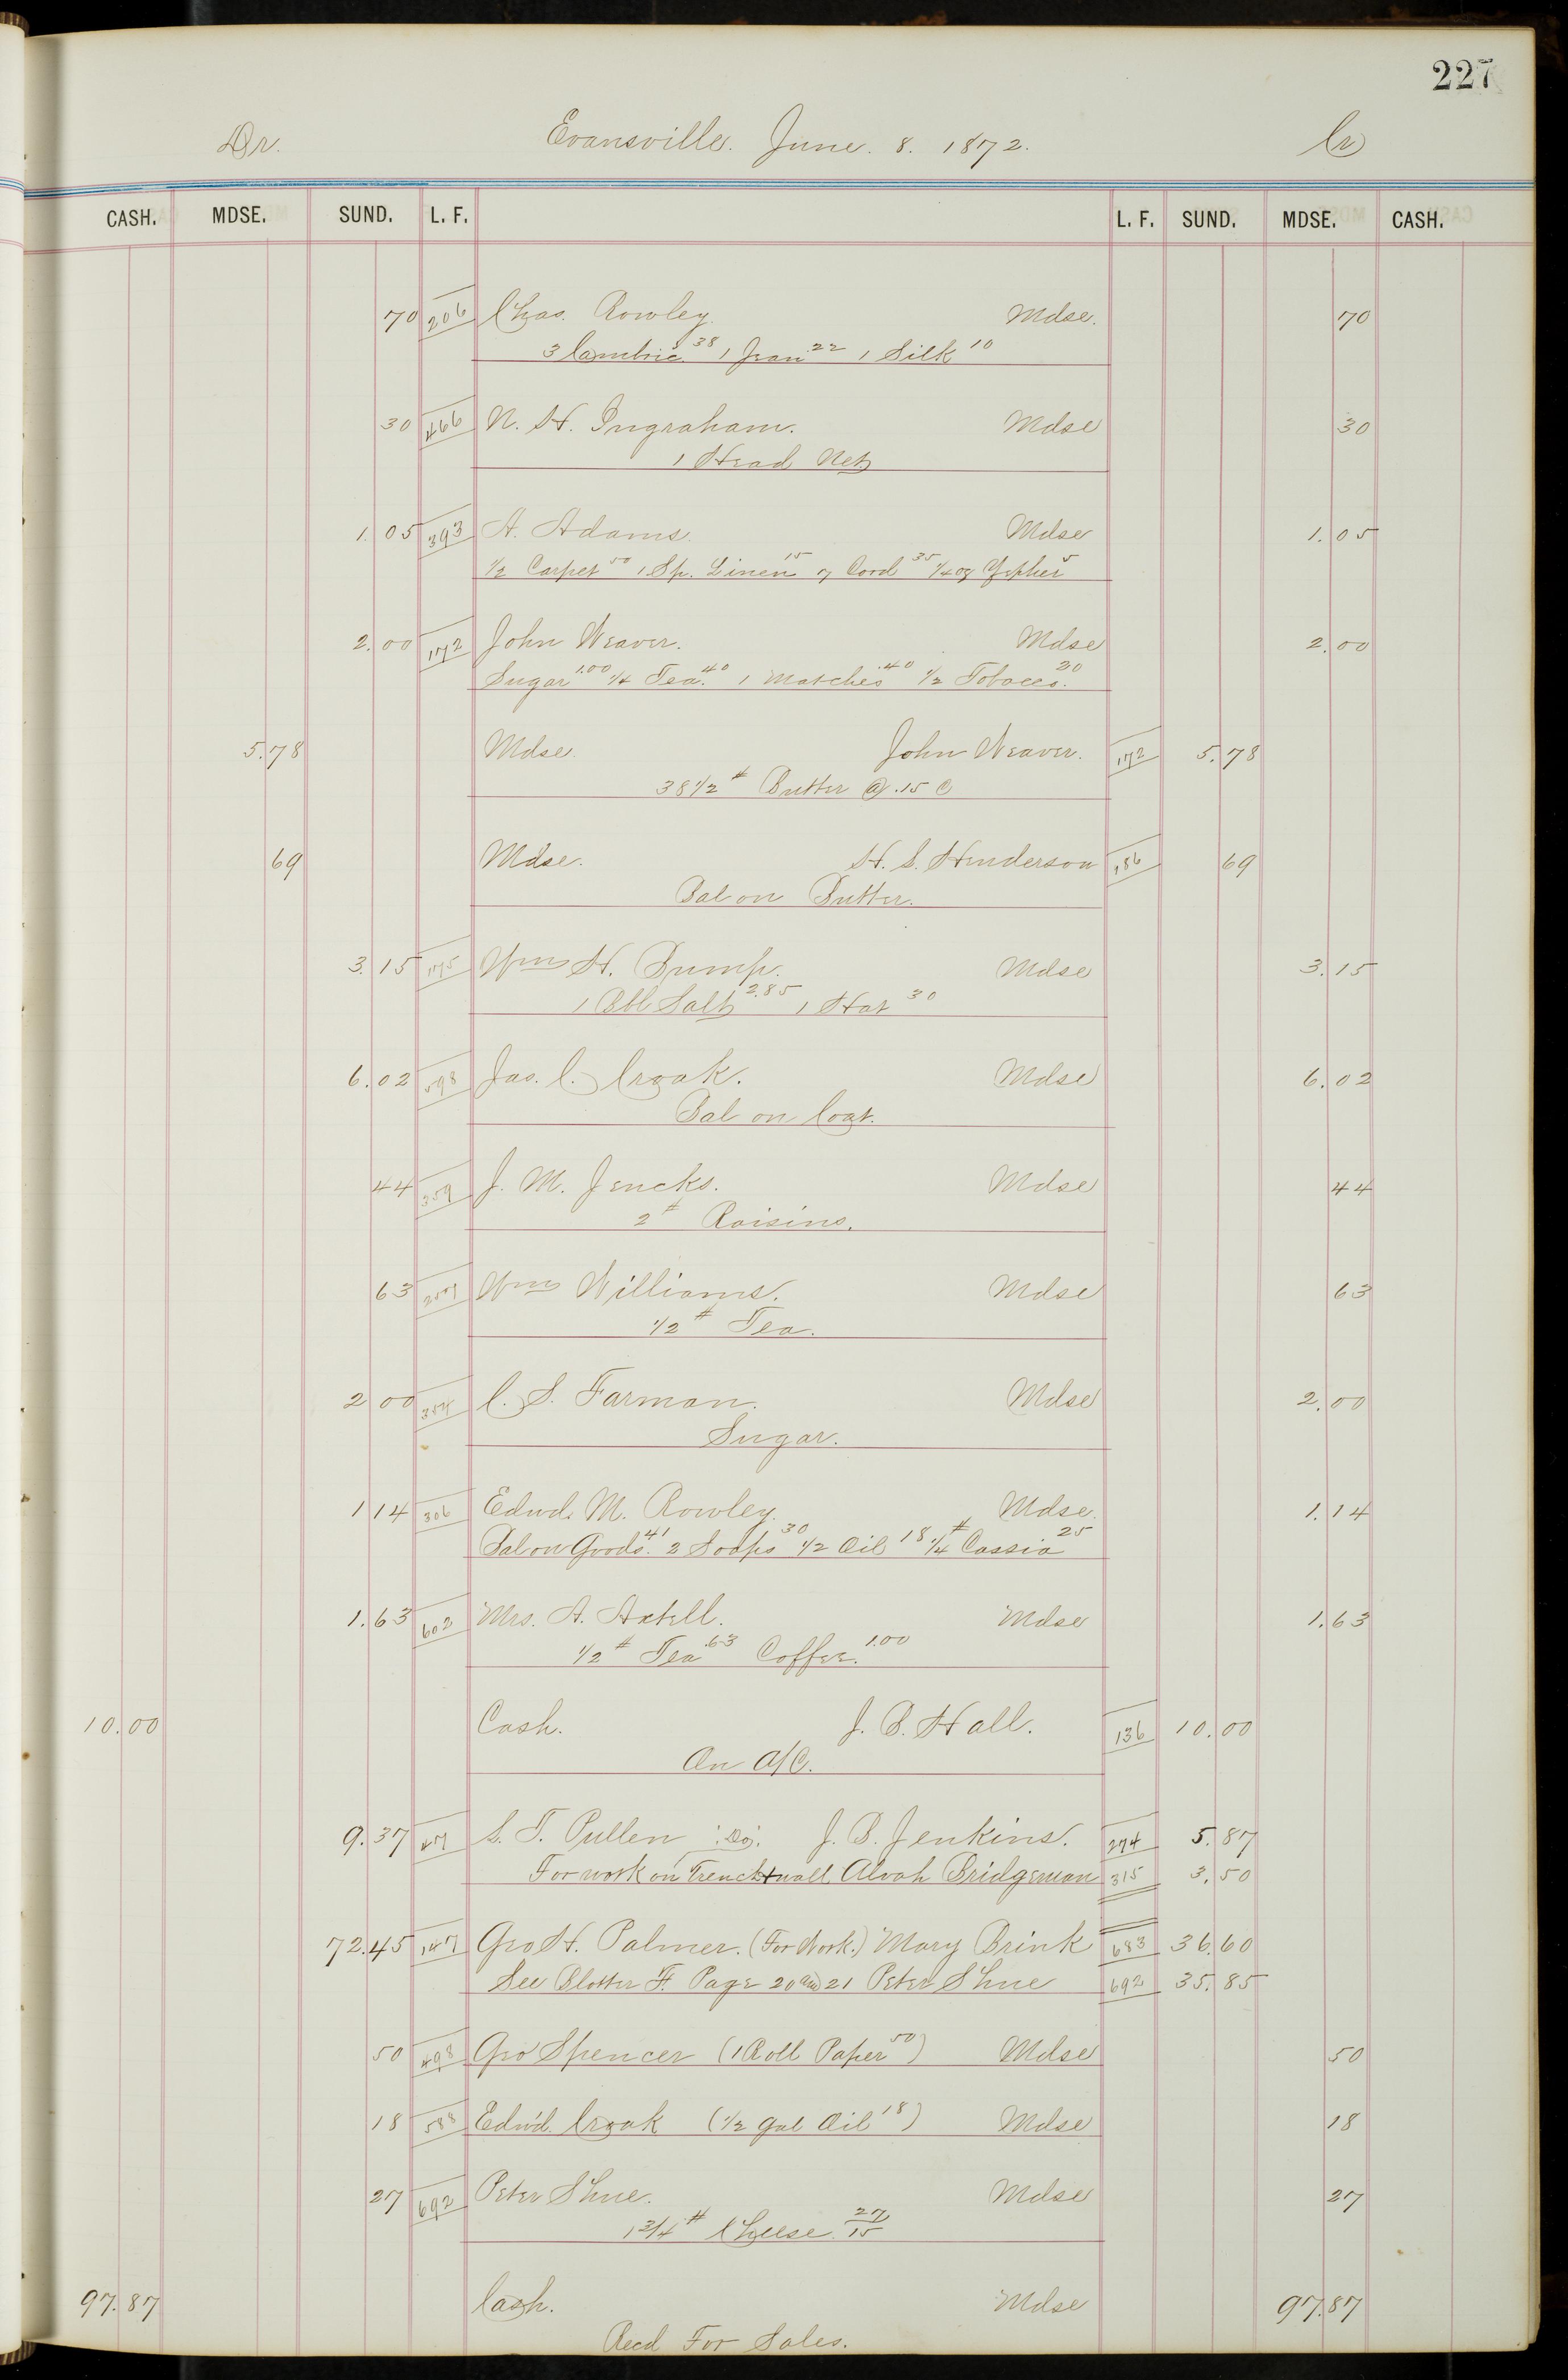 227
Dr. Evansville. June. 8. 1872. Cr
CASH. MDSE. SUND. L. F. L. F. SUND. MDSE. CASH.
70 206 Chas. Rowley. Mdse. 70
3 Cambric 38 1 Jean 22 1 Silk 10
30 466 N. H. Ingraham. Mdse 30
1 Head Net
1.05 393 A. Adams. Mdse 1.05
1/2 Carpet 50 1 Sp. Linen 15 7 Cord 35 1/4 oz Zepher 5
2.00 172 John Weaver. Mdse 2.00
Sugar 1.00 1/4 Tea. 40 1 Matches .40 1/2 Tobacco. 20
5.78 Mdse. John Weaver. 172 5.78
38 1/2 # Butter @ .15 C
69 Mdse. H. S. Henderson 186 69
Bal on Butter.
3.15 175 Wm H. Bump. Mdse 3.15
1 Bbl Salt 2.85 1 Hat 30
6.02 598 Jas. C. Croak. Mdse 6.02
Bal on Coat.
44 359 J. M. Jencks. Mdse 44
2 # Raisins.
63 257 Wm Williams. Mdse 63
1/2 # Tea.
2 00 354 C. S. Farman. Mdse 2.00
Sugar.
1 14 306 Edwd. M. Rowley. Mdse. 1.14
Bal on Goods. 41 2 Soaps 30 1/2 Oil 18 1/4 # Cassia 25
1.63 602 Mrs. A. Axtell. Mdse 1.63
1/2 # Tea .63 Coffee. 1.00
10.00 Cash. J. B. Hall. 136 10.00
On A/C.
9.37 47 S. T. Pullen Do J. B. Jenkins. 274 5.87
For work on Trench + wall Alvah Bridgeman 315 3.50
72.45 147 Geo H. Palmer. (For Work.) Mary Brink 683 36.60
See Blotter F. Page 20 and 21 Peter Shue 692 35.85
50 498 Geo Spencer (1 Roll Paper 50) Mdse 50
18 588 Edwd. Croak (1/2 gal Oil 18) Mdse 18
27 692 Peter Shue. Mdse 27
1 3/4 # Cheese. 27/15
97.87 Cash. Mdse 97.87
Recd For Sales.